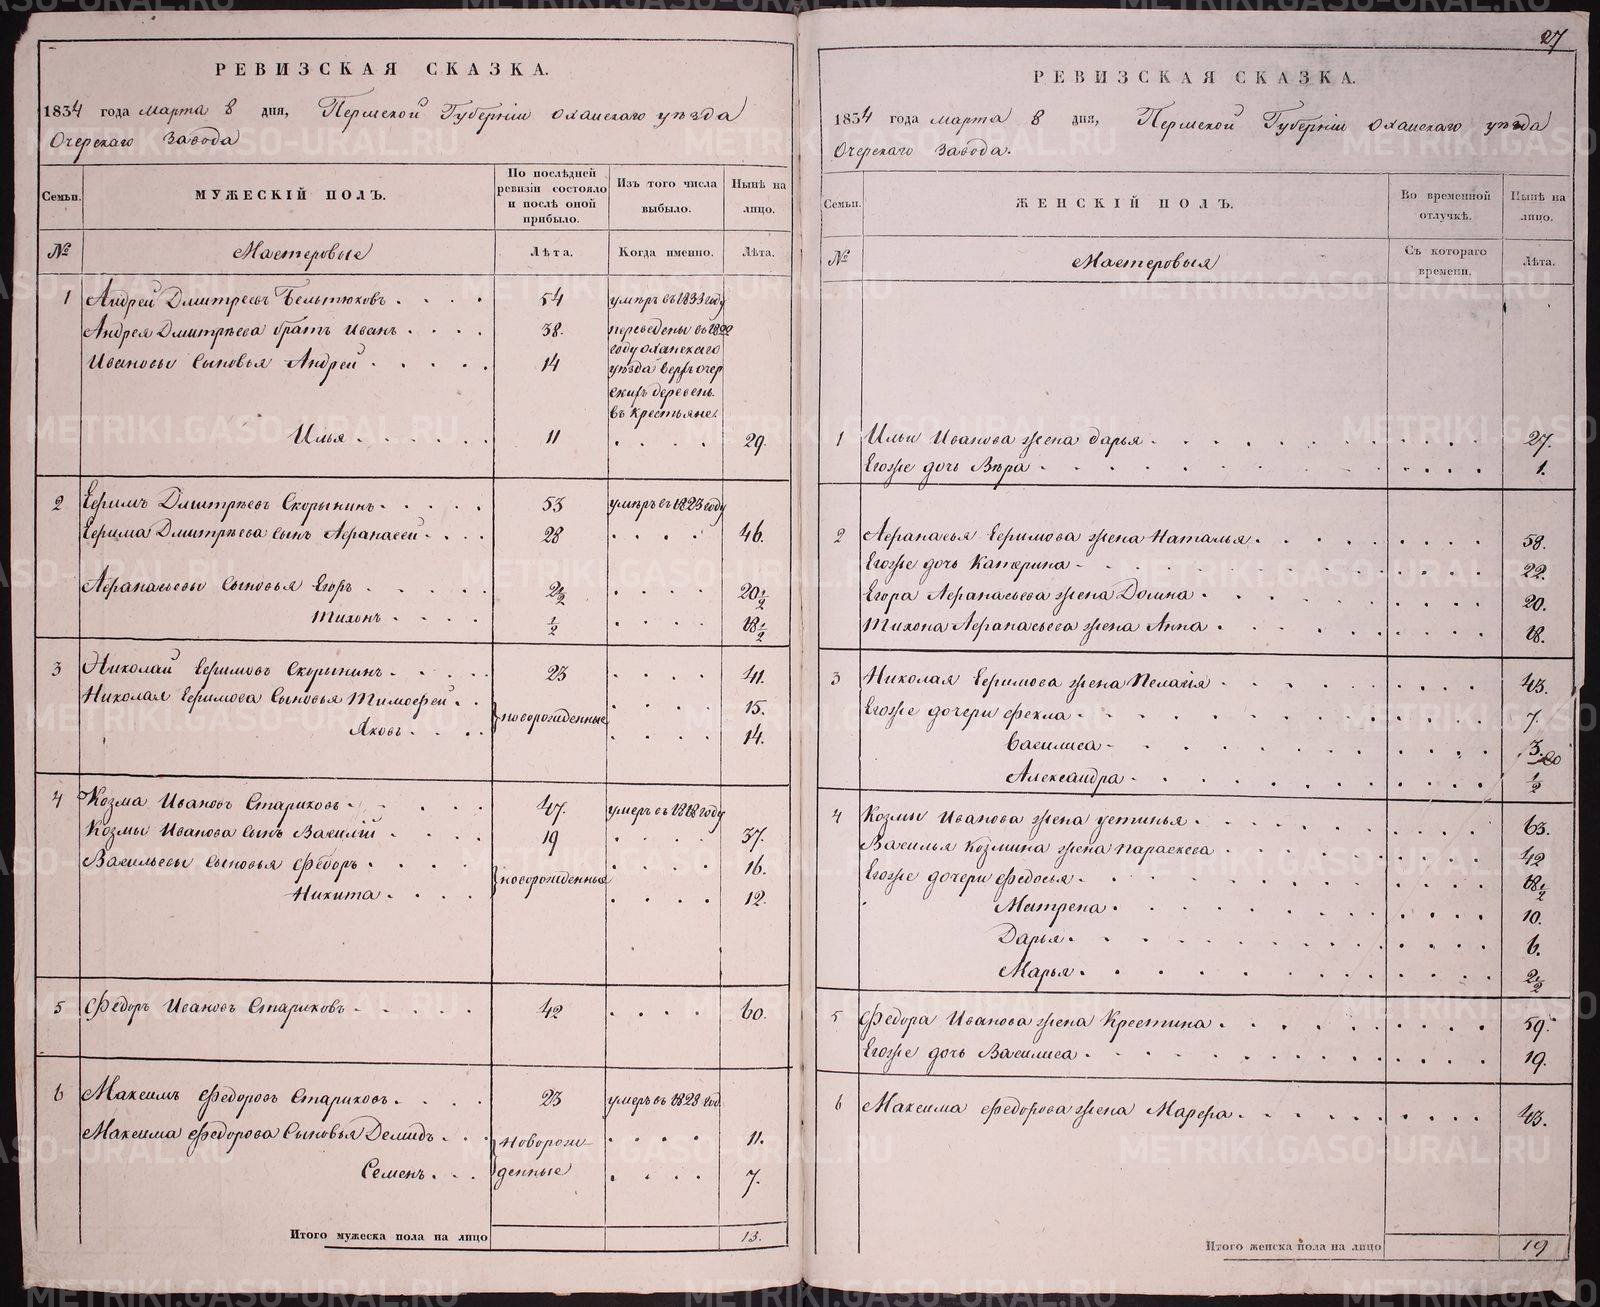 РЕВИЗСКАЯ СКАЗКА.
1834 года марта 8 дня, Пермской Губерніи Оханскаго уѣзда
Очерскаго Завода
Семьи. МУЖЕСКІЙ ПОЛЪ. По послѣдней ревизіи состояло и послѣ оной прибыло. Изъ того числа выбыло. Нынѣ на лицо.
№ Мастеровые Лѣта. Когда именно. Лѣта.
1 Андрей Дмитревъ Бельтюковъ 54 умѣръ въ 1833 году
Андрея Дмитрѣева братъ Иванъ 38. переведены въ 1822
году оханскаго
Ивановы сыновья Андрей 14 уѣзда верхъ очер
скихъ деревень
въ крестьяне.
Илья 11 29.
2 Ефимъ Дмитрѣевъ Скорынинъ 53 умѣръ въ 1823 году
Ефима Дмитрѣева сынъ Афанасей 28 46.
Афанасьевы сыновья Егоръ 2 1/2 20 1/2
Тихонъ 1/2 18 1/2
3 Николай Ефимовъ Скорынинъ 23 41.
Николая Ефимова сыновья Тимофей новорожденные 15.
Яковъ 14.
4 Козма Ивановъ Стариковъ 47. умеръ въ 1818 году
Козмы Иванова сынъ Василій 19 37.
Васильевы сыновья Федоръ новорожденные 16.
Никита 12.
5 Федоръ Ивановъ Стариковъ 42 60.
6 Максимъ Федоровъ Стариковъ 23 умеръ въ 1828 год.
Максима Федорова сыновья Демидъ новорож- 11.
Семенъ денные 7.
Итого мужеска пола на лицо 13.
27
РЕВИЗСКАЯ СКАЗКА.
1834 года марта 8 дня, Пермской Губерніи Оханскаго уѣзда
Очерскаго Завода.
Семьи. ЖЕНСКІЙ ПОЛЪ. Во временной отлучкѣ. Нынѣ на лицо.
№ Мастеровыя Съ котораго времени. Лѣта.
1 Ильи Иванова жена Дарья 27.
Егоже дочь Вѣра 1.
2 Афанасья Ефимова жена Наталья 58.
Егоже дочь Катерина 22.
Егора Афанасьева жена Домна 20.
Тихона Афанасьева жена Анна 18.
3 Николая Ефимова жена Пелагія 43.
Егоже дочери Фекла 7.
Василиса 3.
Александра 1/2
4 Козмы Иванова жена Устинья 63.
Василья Козмина жена Параскева 42
Егоже дочери Федосья 18 1/2
Матрена 10.
Дарья 6.
Марья 2 1/2
5 Федора Иванова жена Крестина 59.
Егоже дочь Василиса 19.
6 Максима Федорова жена Марфа 43.
Итого женска пола на лицо 19
METRIKI.GASO-URAL.RU